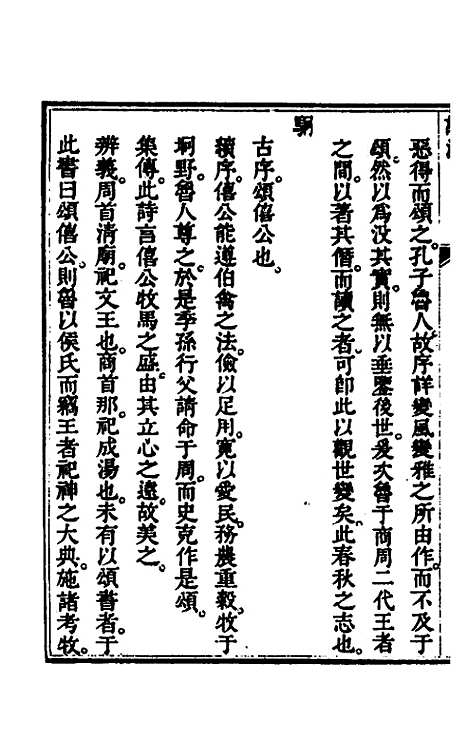 惡得而頌之。孔子魯人。故序詳變風變雅之所由作。而不及于
頌。然以為沒其實。則無以垂鑒後世。爰次魯于商周二代王者
之間。以著其僭。而讀之者。可即此以觀世變矣。此春秋之志也。
駉
古序。頌僖公也。
續序。僖公能遵伯禽之法。儉以足用。寬以愛民。務農重穀。牧于
坰野。魯人尊之。於是季孫行父請命于周。而史克作是頌。
集傳。此詩言僖公牧馬之盛。由其立心之遠。故美之。
辨義。周首清廟。祀文王也。商首那。祀成湯也。未有以頌書者。于
此書曰頌僖公。則魯以侯氏而竊王者祀神之大典。施諸考牧。